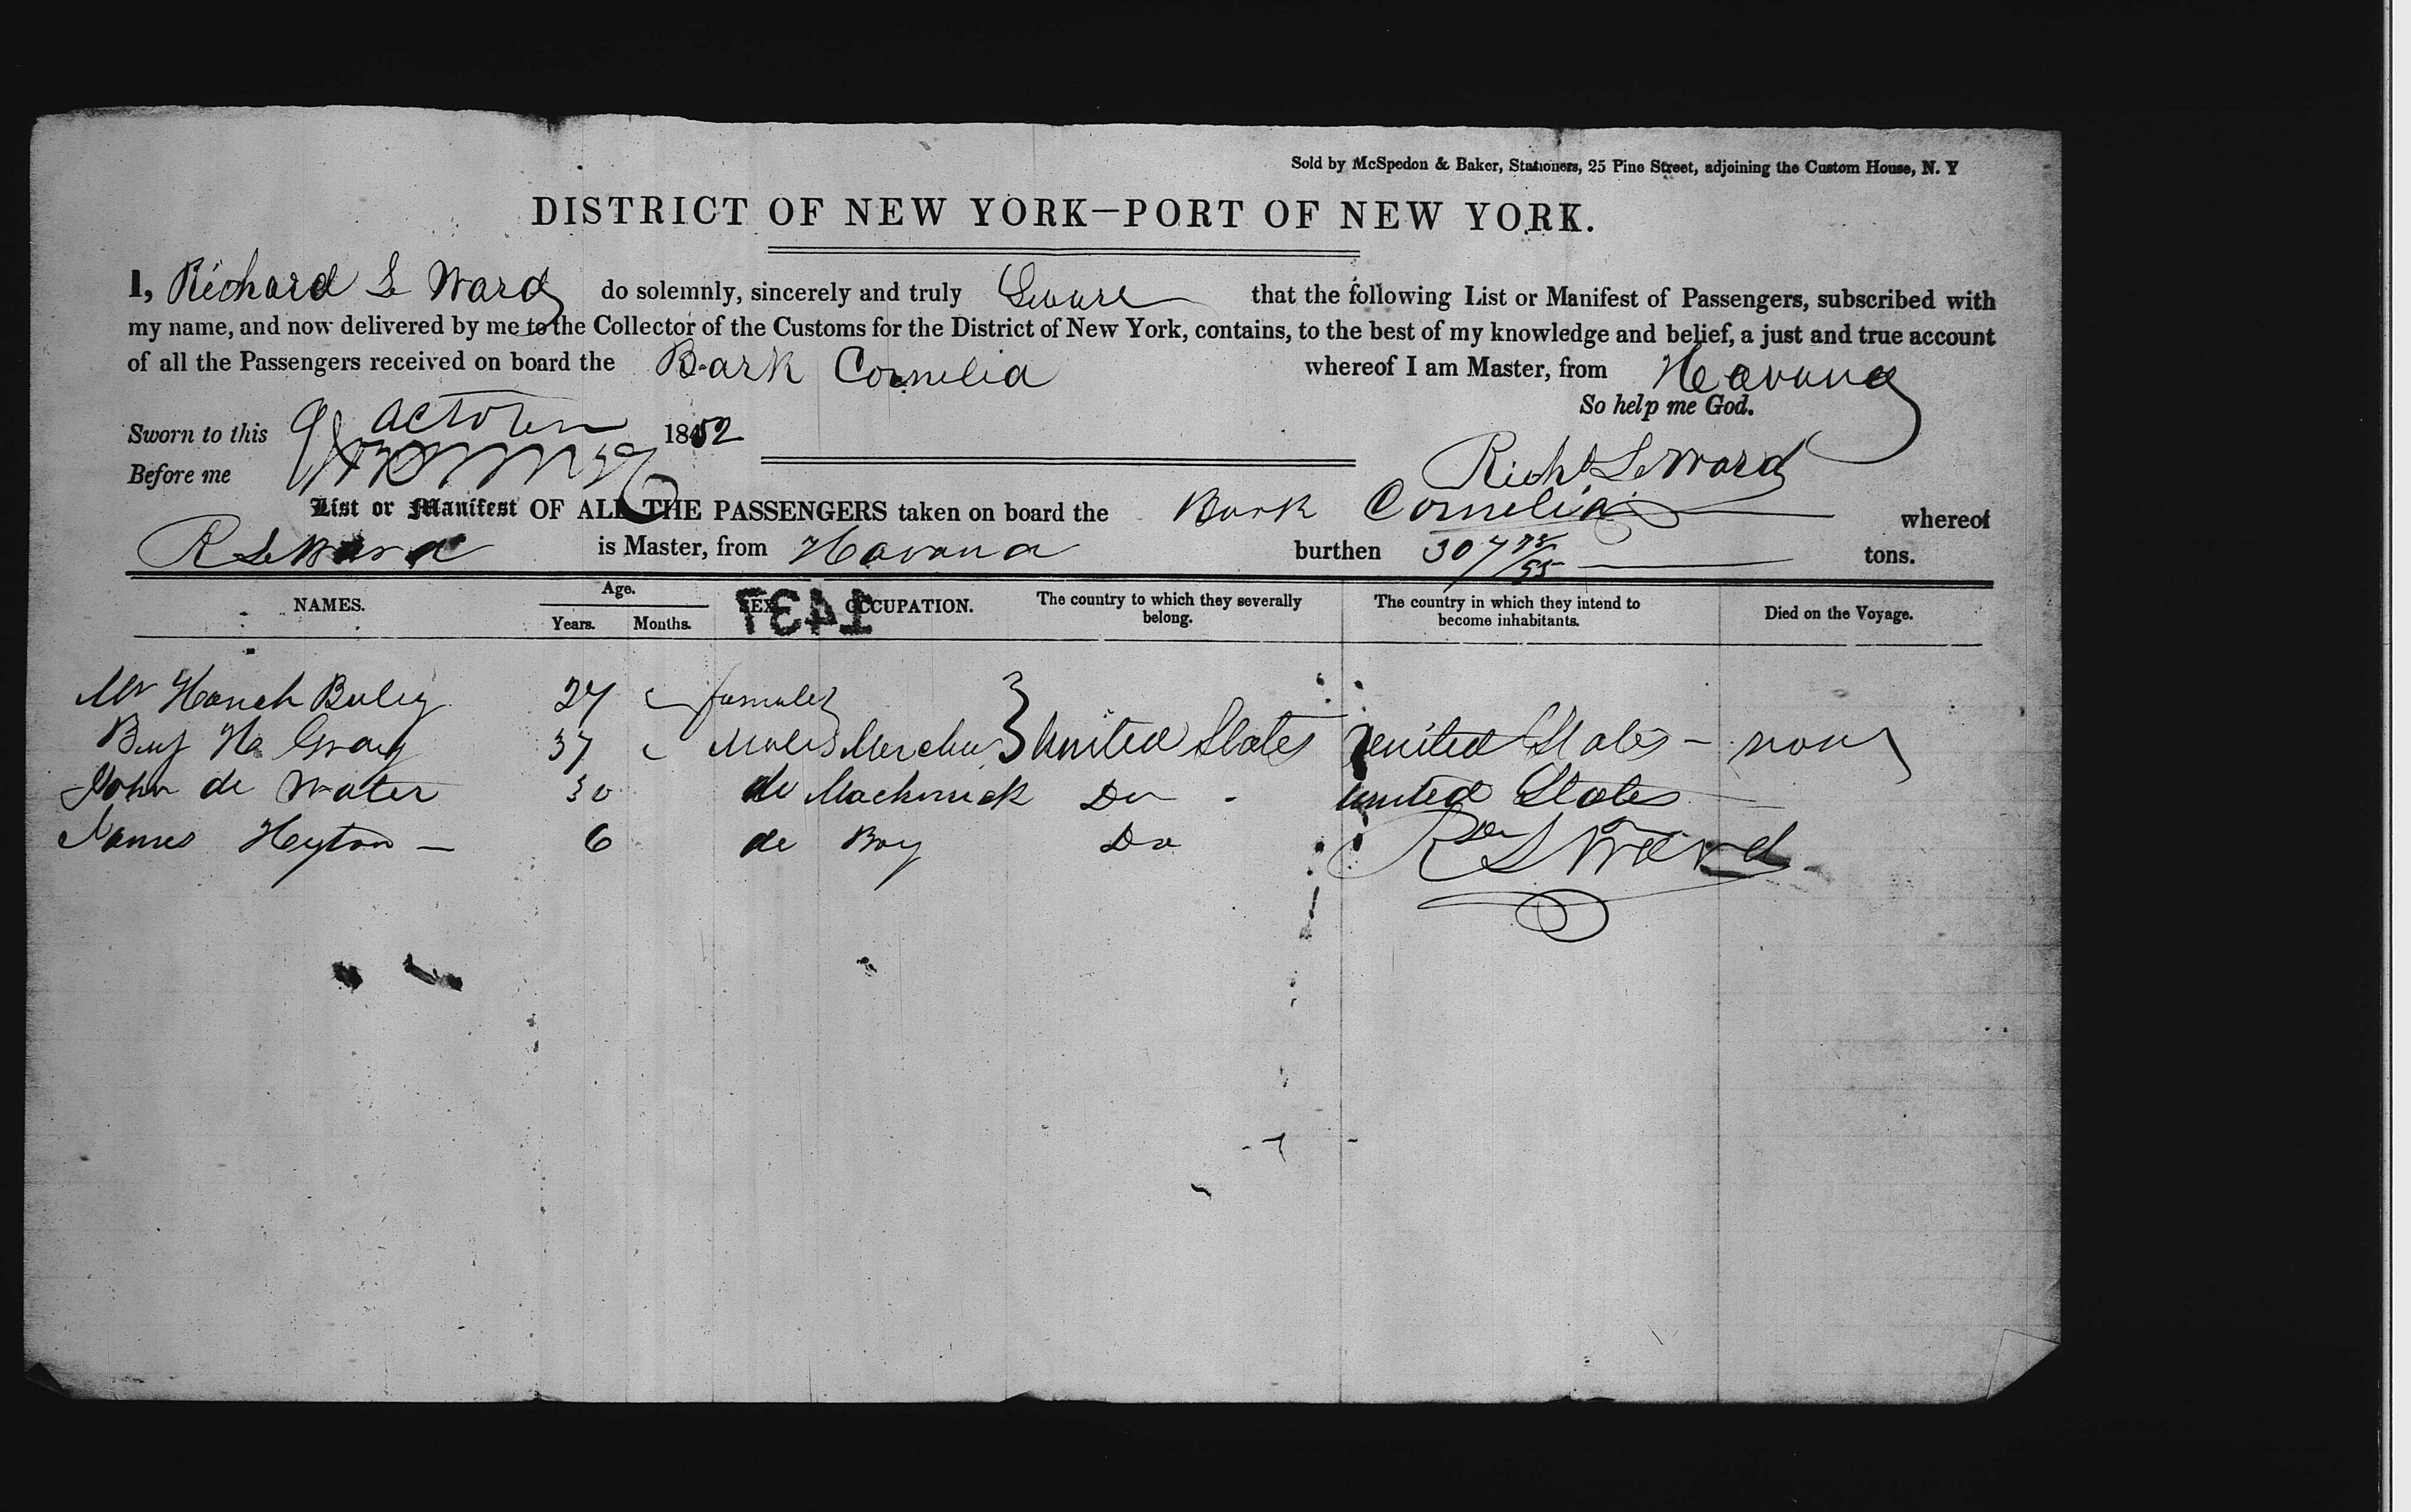 Sold by McSpedon & Baker, Stationers, 25 Pine Street, adjoining the Custom House, N. Y
DISTRICT OF NEW YORK—PORT OF NEW YORK.
I, Richard S Ward do solemnly, sincerely and truly Sware that the following List or Manifest of Passengers, subscribed with
my name, and now delivered by me to the Collector of the Customs for the District of New York, contains, to the best of my knowledge and belief, a just and true account
of all the Passengers received on board the Bark Cornelia whereof I am Master, from Havana
So help me God.
Sworn to this 9 1852
Before me
Richd S Ward
List or Manifest OF ALL THE PASSENGERS taken on board the Bark Cornelia whereof
R S Ward is Master, from Havana burthen 307 78/95 tons.
NAMES. Age. Years. Months. SEX OCCUPATION. The country to which they severally belong. The country in which they intend to become inhabitants. Died on the Voyage.
1431
27 females
37 Males United States United States - none
John de Water 30 do Do United States
James Heyton — 6 do Boy Do
R S Ward